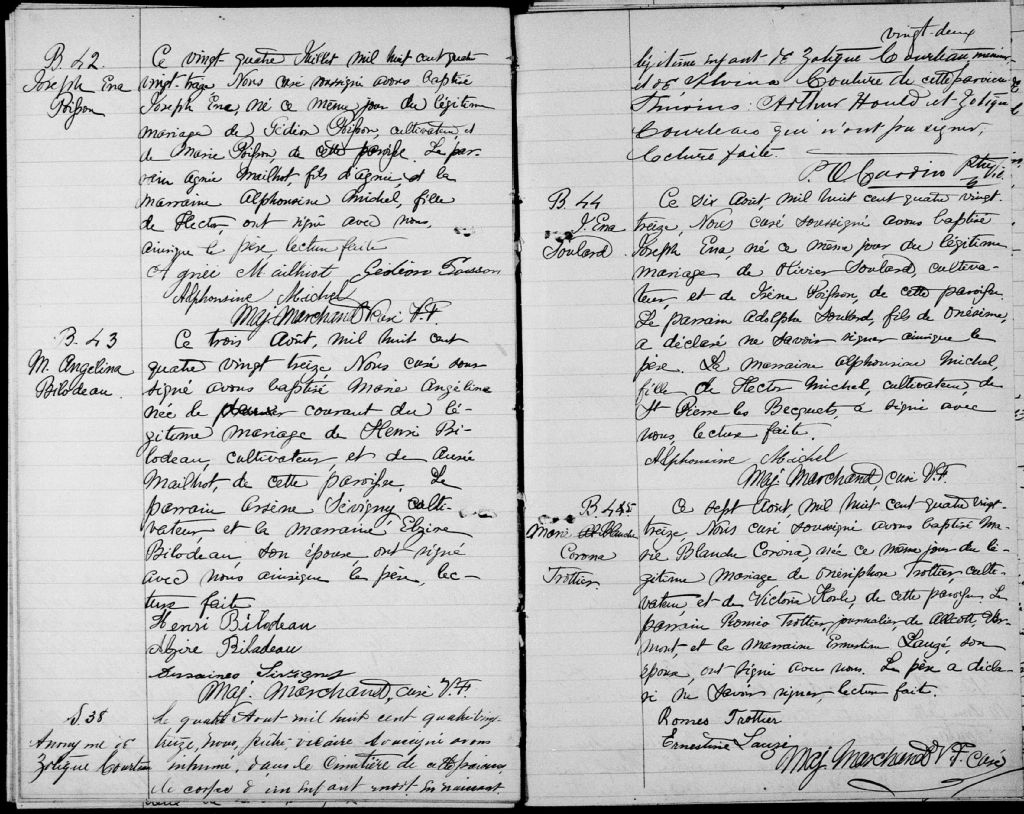 B. 42.
Joseph Ena
Poisson
Ce vingt quatre Juillet mil huit cent quatre
vingt-treize Nous curé soussigné avons baptisé
Joseph Ena, né ce même jour du légitime
mariage de Gédéon Poisson, cultivateur, et
de Marie Poisson, de cette paroisse. Le par-
rain Agnée Mailhot, fils d'Agnée, et la
marraine Alphonsine Michel, fille
de Hector ont signé avec nous,
ainsique le père, lecture faite
Agnée Mailhiot Gédéon Poisson
Alphonsine Michel
Maj. Marchand curé V.F.
B. 43
M. Angelina
Bilodeau.
Ce trois Août, mil huit cent
quatre vingt treize Nous curé sous
signé avons baptisé Marie Angélina
née le courant du lé-
gitime mariage de Henri Bi-
lodeau, cultivateur, et de
Mailhot, de cette paroisse. Le
parrain Arsène Sévigny culti-
vateur, et la marraine, Elzire
Bilodeau, son épouse, ont signé
avec nous ainsique le père, lec-
ture faite
Henri Bilodeau
Alzire Biladeau
Sévigny
Maj. Marchand, curé V.F.
S. 38
Anonyme de
Zotique Courteau
Le quatre Août mil huit cent quatre vingt
treize, nous, prêtre-vicaire soussigné avons
inhumé, dans le Cimetière de cette paroisse,
le corps d'un enfant mort en naissant.
vingt-deux
légitime enfant de Zotique Courteau,
et de Alvina Couture de cette paroisse
Témoins: Arthur Hould et Zotique
Courteau qui n'ont pu signer,
lecture faite.
P. O. Cardin Ptre Vic.
B. 44
J. Ena
Soulard
Ce six Août, mil huit cent quatre vingt
treize, Nous curé soussigné avons baptisé
Joseph Ena, né ce même jour du légitime
mariage de Olivier Soulard, cultiva-
teur, et de Irène Poisson, de cette paroisse.
Le parrain Adolphe Soulard, fils de Onésime,
a déclaré ne savoir signer ainsique le
père. La marraine Alphonsine Michel,
fille de Hector Michel, cultivateur, de
St Pierre les Becquets, a signé avec
nous, lecture faite.
Alphonsine Michel
Maj. Marchand curé V.F.
B. 45
Marie Blanche
Corona
Trottier.
Ce sept Août mil huit cent quatre vingt-
treize, Nous curé soussigné avons baptisé Ma-
rie Blanche Corona, née ce même jour du lé-
gitime mariage de Onésiphore Trottier, culti-
vateur, et de Victoria, de cette paroisse. Le
parrain Roméo Trottier, journalier, de, Ver-
mont, et la marraine Ernestine Lauzé, son
épouse, ont signé avec nous. Le père a décla-
ré ne savoir signer, lecture fait.
Romeo Trottier
Ernestine Lauzé
Maj. Marchand V.F. curé